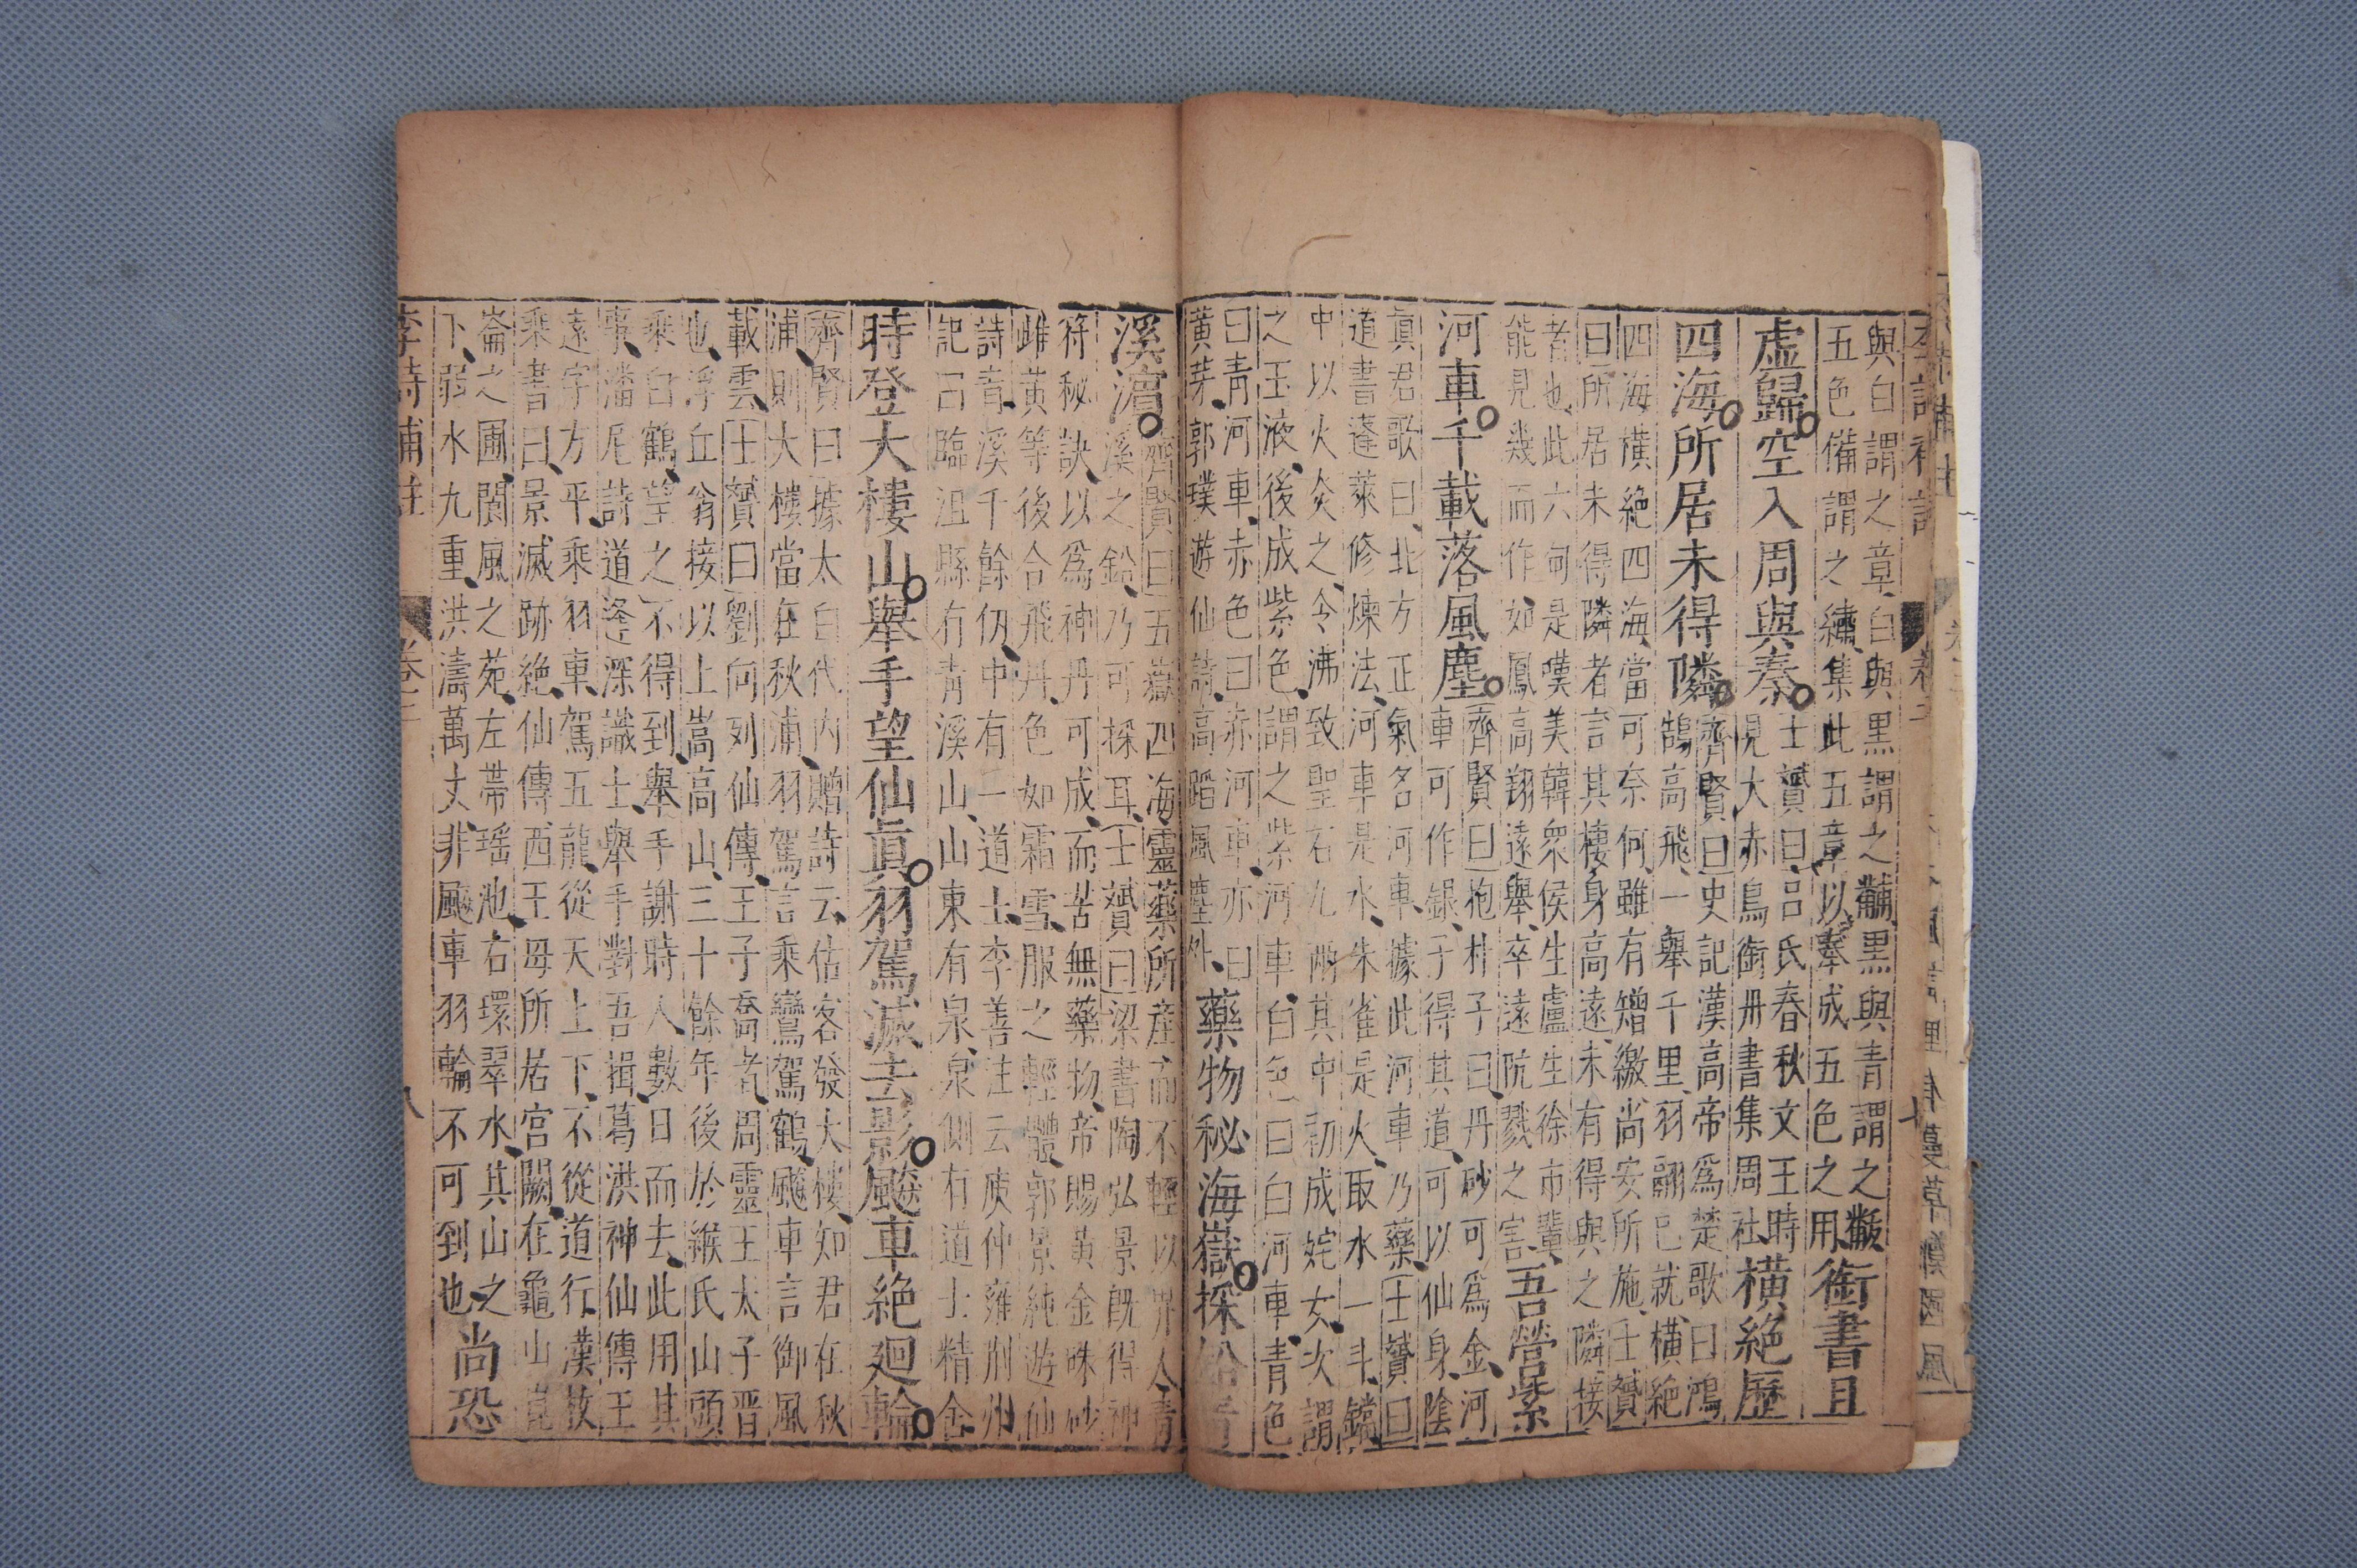 與白謂之章白與黑謂之黼黑與青謂之黻
五色備謂之繡集此五章以奉成五色之用銜書且
虛歸空入周與秦士贇曰呂氏春秋文王時
見大赤烏銜丹書集周社橫絕歷
四海所居未得隣齊賢曰史記漢高帝爲楚歌曰鴻
鵠高飛一舉千里羽翮已就橫絕
四海橫絕四海當可奈何雖有矰繳尚安所施士贇
曰所居未得隣者言其棲身高遠未有得與之隣接
者也此六句是嘆美韓衆侯生盧生徐市輩
能見幾而作如鳳高翔遠舉卒遠阬戮之害吾營紫
河車千載落風塵齊賢曰抱朴子曰丹砂可爲金河
車可作銀子得其道可以仙身陰
眞君歌曰北方正氣名河車據此河車乃藥士贇曰
道書蓬萊修煉法河車是水朱雀是火取水一斗鐺
中以火炎之令沸致聖石九兩其中初成姹女次謂
之玉液後成紫色謂之紫河車白色曰白河車青色
曰青河車赤色曰赤河車亦曰
黃芽郭璞遊仙詩高蹈風塵外藥物秘海嶽採鉛青
溪濱齊賢曰五嶽四海靈藥所產而不輕以畀人青
溪之鉛乃可採耳士贇曰梁書陶弘景旣得神
符秘訣以爲神丹可成而苦無藥物帝賜黃金硃砂
雌黃等後合飛丹色如霜雪服之輕體郭景純遊仙
詩青溪千餘仞中有一道士李善注云庾仲雍荆州
記曰臨沮縣有青溪山山東有泉泉側有道士精舍
時登大樓山舉手望仙眞羽駕滅去影飈車絕廻輪
齊賢曰據太白代內贈詩云估客發大樓知君在秋
浦則大樓當在秋浦羽駕言乘鸞駕鶴飈車言御風
載雲士贇曰劉向列仙傳王子喬者周靈王太子晋
也浮丘翁接以上嵩高山三十餘年後於緱氏山頭
乘白鶴望之不得到舉手謝時人數日而去此用其
事潘尼詩道逢深識士舉手對吾揖葛洪神仙傳王
遠字方平乘羽車駕五龍從天上下不從道行漢枚
乘書曰景滅跡絕仙傳西王母所居宮闕在龜山崑
崙之圃閬風之苑左帶瑤池右環翠水其山之
下弱水九重洪濤萬丈非飈車羽輪不可到也尚恐
李詩補註 卷二 八